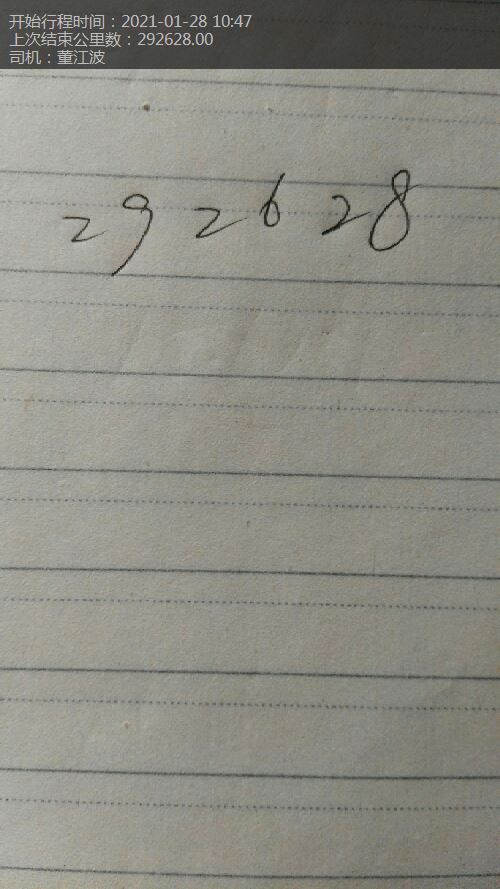 开始行程时间：2021-01-28 10:47
上次结束公里数：292628.00
司机：董江波
292628